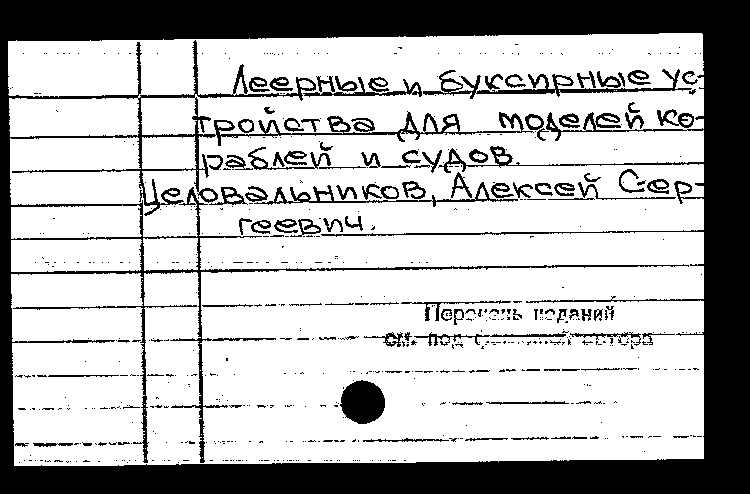 Леерные и буксирные ус-
тройства для моделей ко-
раблей и судов.
Целовальников, Алексей Сер-
геевич.
Перечень изданий
см. под фамилией автора